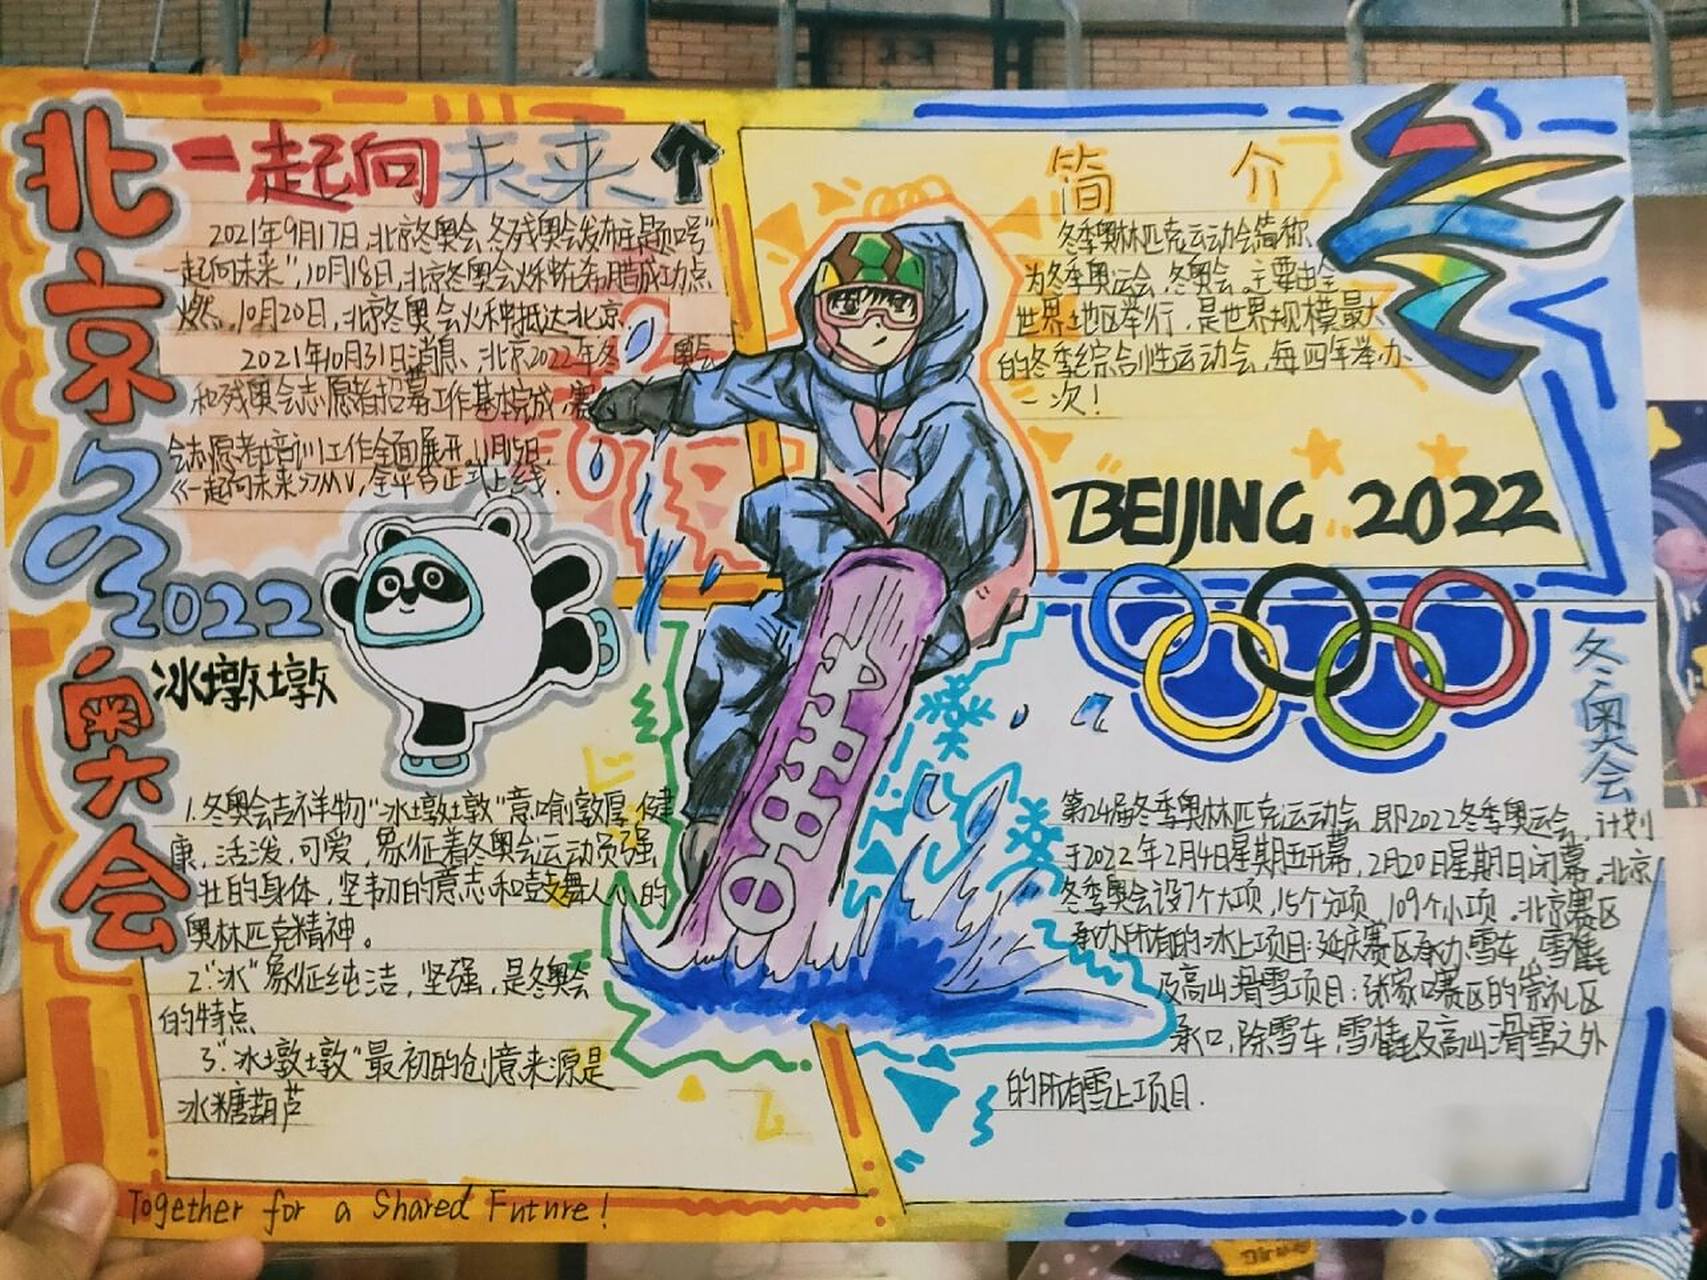 北京冬奥会
2022
一起向未来
2021年9月17日,北京冬奥会、冬残奥会发布主题口号"
一起向未来",10月18日,北京冬奥会火种在希腊成功点
燃,10月20日,北京冬奥会火种抵达北京.
2021年10月31日消息、北京2022年冬 奥会
和残奥会志愿者招募工作基本完成,赛
会志愿者培训工作全面展开,11月15日,
《一起向未来》MV,全平台正式上线.
冰墩墩
1.冬奥会吉祥物"冰墩墩"意喻敦厚,健
康,活泼,可爱,象征着冬奥会运动员强
壮的身体,坚韧的意志和鼓舞人心的
奥林匹克精神。
2."冰"象征纯洁,坚强,是冬奥会
的特点
3."冰墩墩"最初的创意来源是
冰糖葫芦
Together for a Shared Future!
简 介
冬季奥林匹克运动会简称
为冬季奥运会、冬奥会,主要由全
世界地区举行,是世界规模最大
的冬季综合性运动会,每四年举办
一次!
BEIJING 2022
冬奥会
第24届冬季奥林匹克运动会,即2022冬季奥运会,计划
于2022年2月4日星期五开幕,2月20日星期日闭幕,北京
冬季奥会设7个大项,15个分项,109个小项。北京赛区
承办所有的冰上项目;延庆赛区承办雪车,雪橇
及高山滑雪项目;张家口赛区的崇礼区
承口,除雪车,雪橇及高山滑雪之外
的所有雪上项目.